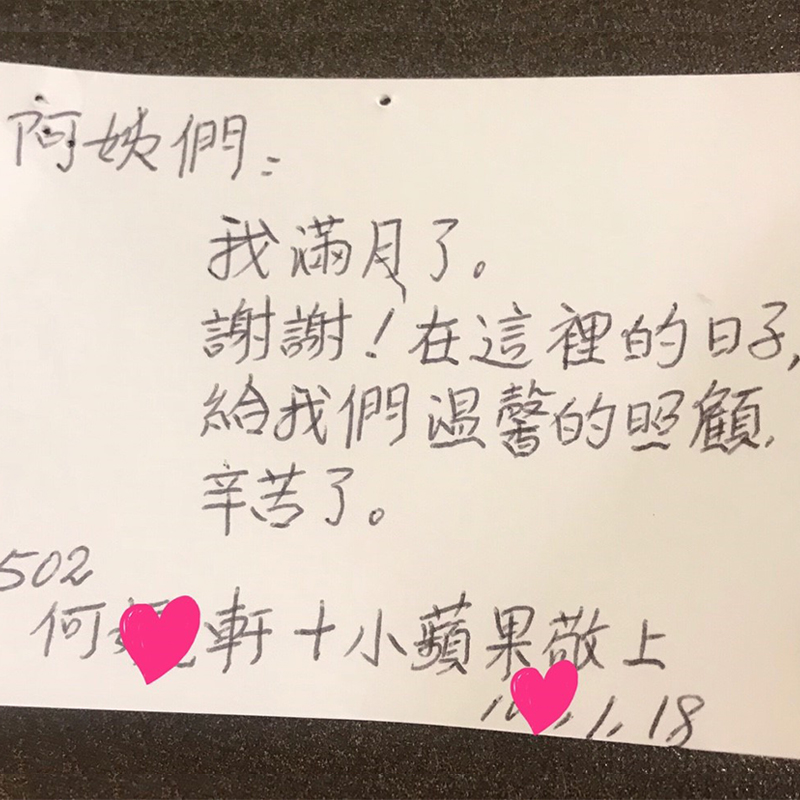 阿姨們：
我滿月了。
謝謝！在這裡的日子，
給我們溫馨的照顧，
辛苦了。
502
何 軒＋小蘋果敬上
1.18